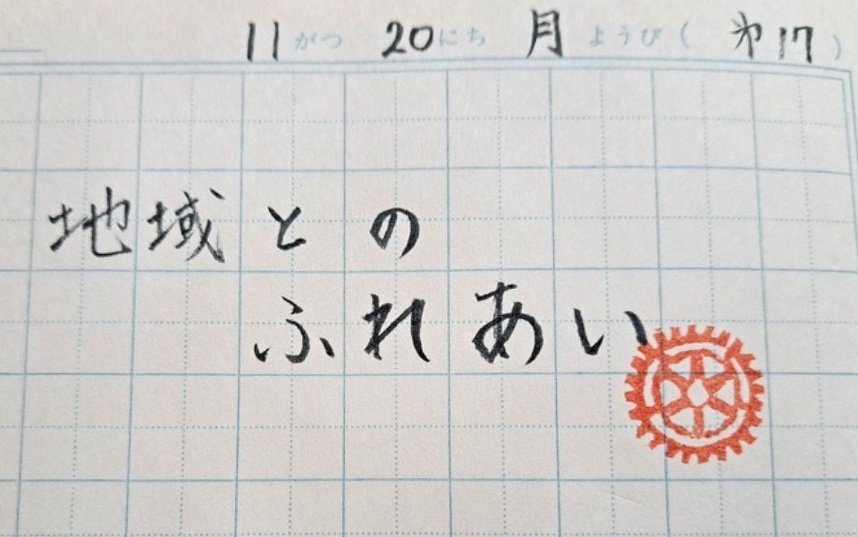 11がつ 20にち 月ようび( 㐧17 )
地域との
ふれあい